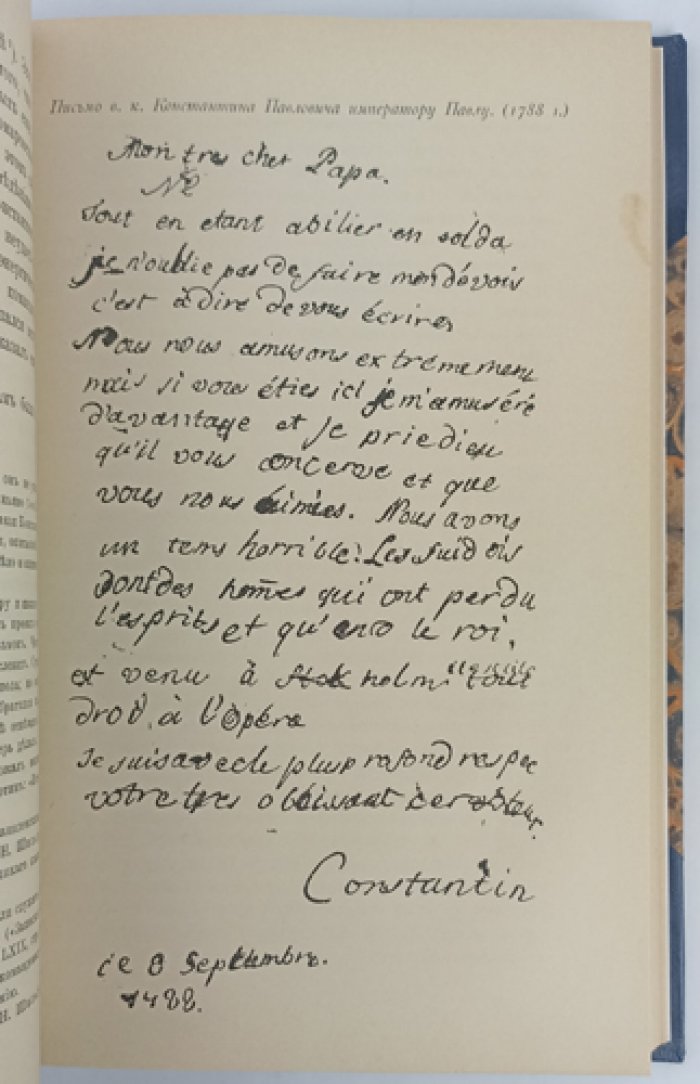 Письмо в. к. Константина Павловича императору Павлу. (1788 г.)
Mon tres cher Papa.
Tout en etant abilier en solda
je n'oublie pas de faire mon dévois
c'est à dire de vous écrire,
Nous nous amusons extremement
mais si vous éties ici je m'amuséré
d'avantage et je priedieu
qu'il vous concerve et que
vous nous aimies. Nous avons
un tems horrible! Les suidois
sont des homes qui ont perdu
l'esprits et qu'and le roi,
est venu à Stokholm tout
droit, à l'Opéra
Je suis avec le plus profond respec
votre tres obbisant
Constantin
ce 8 Septembre.
1788.